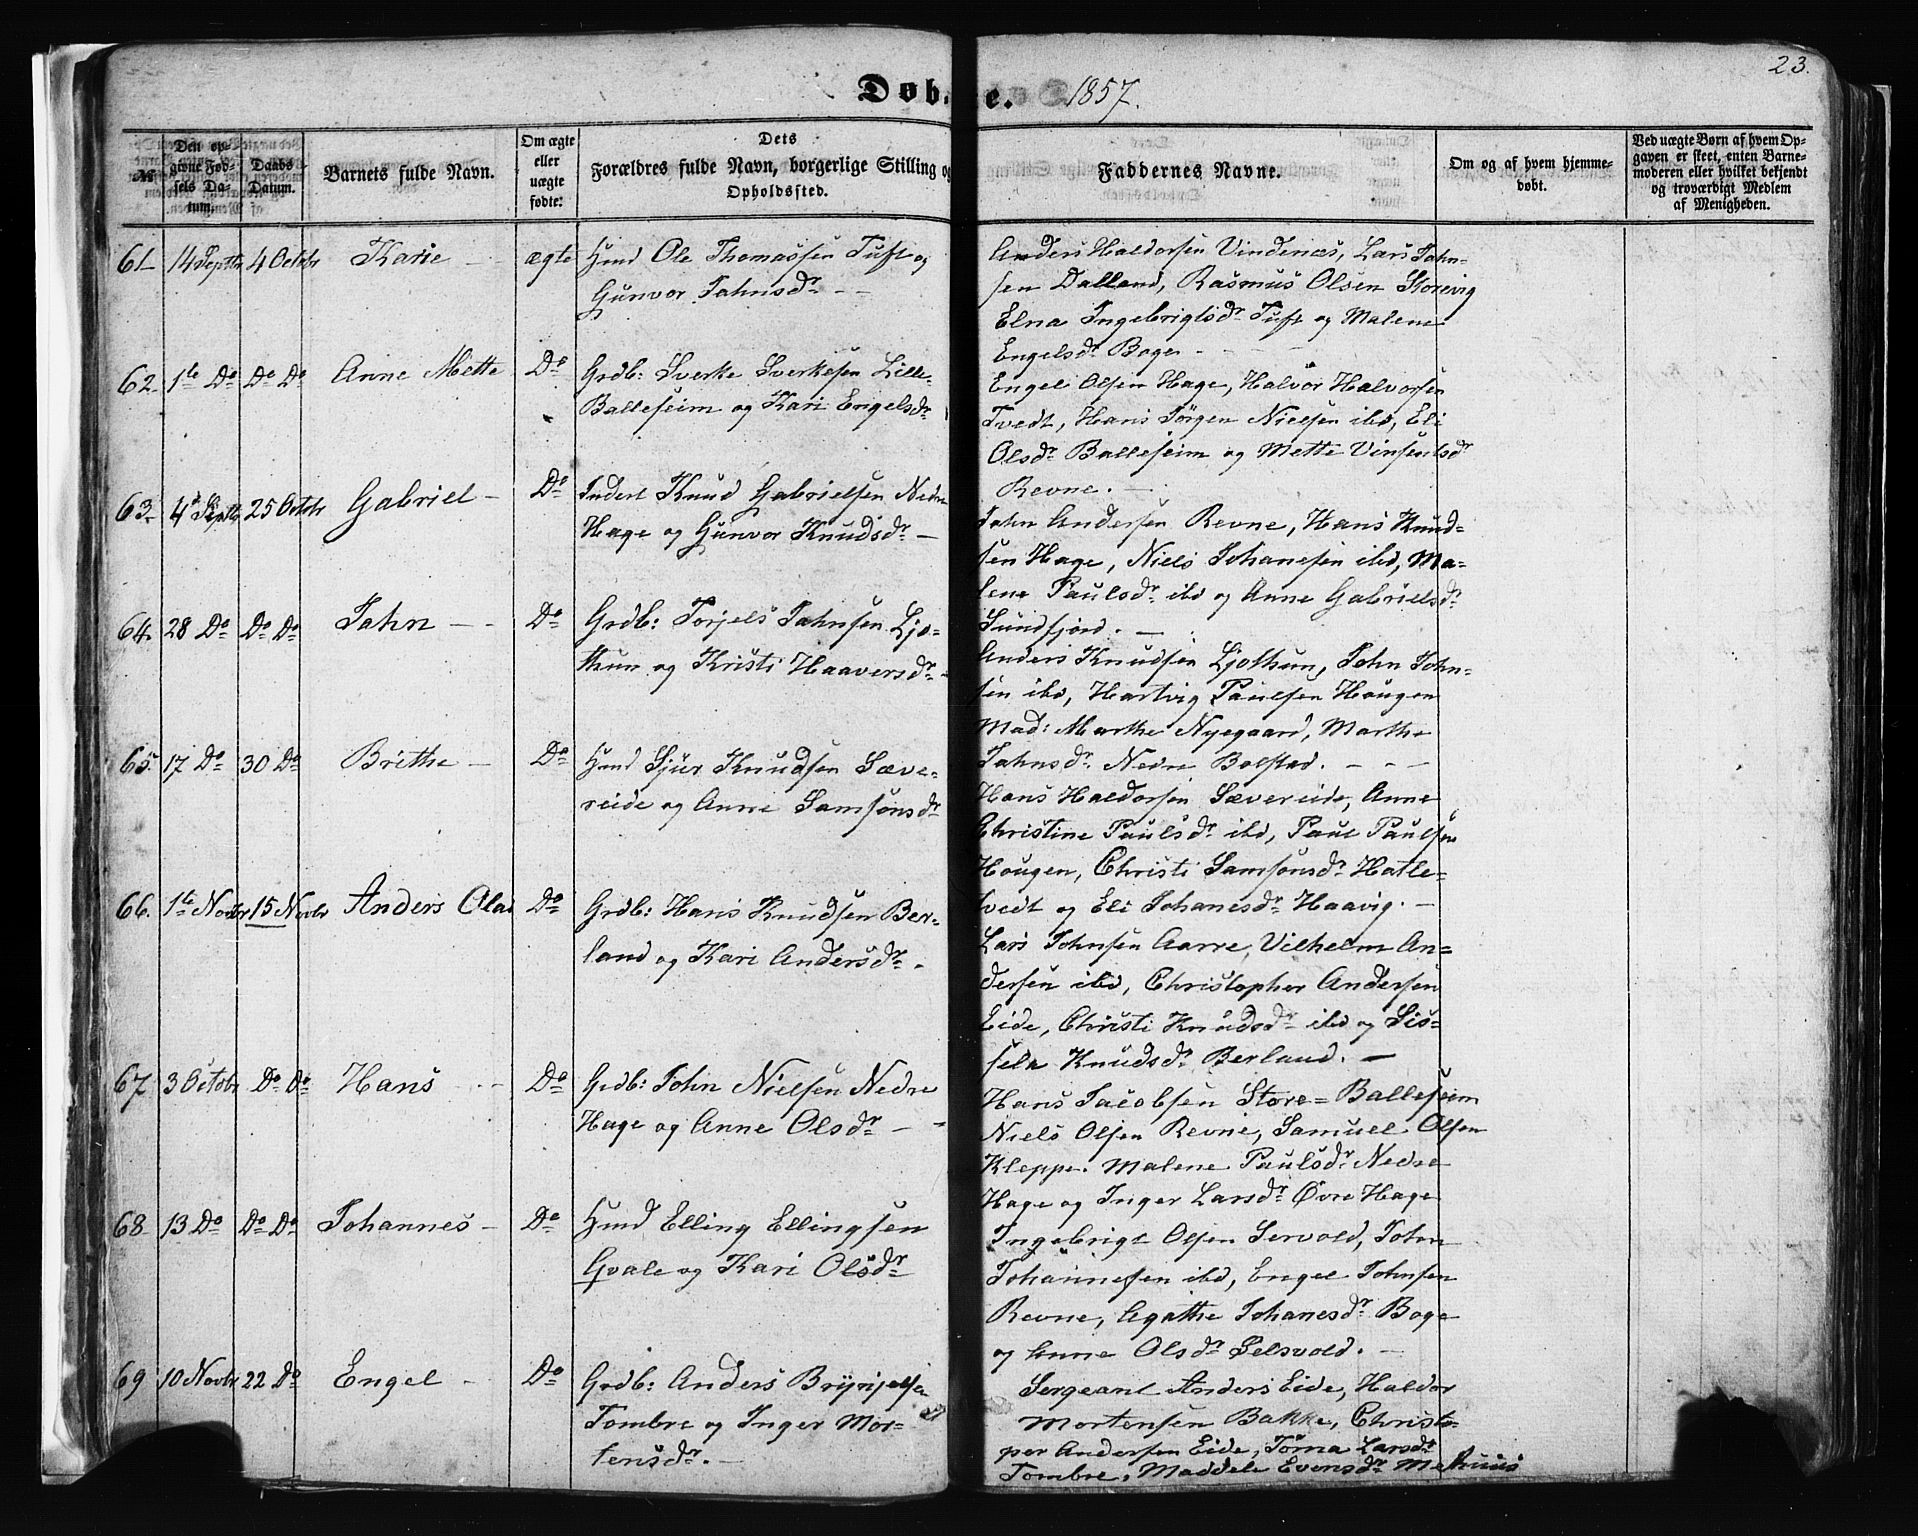 23.
Døb. e. 1857.
№ Den opgivne Fødsels Datum. Daabs Datum. Barnets fulde Navn. Om ægte eller uægte fødte: Dets Forældres fulde Navn, borgerlige Stilling og Opholdssted. Faddernes Navne. Om og af hvem hjemmedøbt. Ved uægte Børn af hvem Opgaven er skeet, enten Barnemoderen eller hvilket bekjendt og troværdigt Medlem af Menigheden.
61 14 Septbr 4 Octbr Karie ægte Hmd Ole Thomassen Tuft og
Gunvor Jahnsdr
Anders Haldorsen Vindenæs, Lars Jahn-
sen Dalland, Rasmus Olsen Storevig
Elna Ingebrigtsdr Tuft og Malene
Engelsdr Boge
62. 1te Do Do Do Anne Mette Do Grdb: Sverke Sverkesen Lille-
Balleseim og Kari Engelsdr
Engel Olsen Hage, Halvor Halvorsen
Tvedt, Hans Jørgen Nielsen ibd, Eli
Olsdr Balleseim og Mette Vinsentsdr
Revne.
63. 4 Septbr 25 Octbr Gabriel Do Inderst Knud Gabrielsen Nedre
Hage og Gunvor Knudsdr
John Andersen Revne, Hans Knud-
sen Hage, Niels Johanesen ibd, Ma-
lene Paulsdr ibd og Anne Gabrielsdr
Sundfjord.
64. 28 Do Do Do Jahn Do Grdb: Torjels Jahnsen Ljo-
thun og Kristi Haaversdr
Anders Knudsen Ljothun, John John-
sen ibd, Hartvig Paulsen Hougen
Mad: Marthe Nyegaard, Marthe
Jahnsdr Nedre Bolstad.
65. 17 Do 30 Do Brithe Do Hmd Sjur Knudsen Sæve-
reide og Anne Samsonsdr
Hans Haldorsen Sævereide, Anne
Christine Paulsdr ibd, Paul Paulsen
Hougen, Christi Samsonsdr Hatle-
tvedt og Eli Johanesdr Haavig.
66. 1te Novbr 15 Novbr Anders Olai Do Grdb: Hans Knudsen Ber-
land og Kari Andersdr.
Lars Johnsen Aarre, Vilhelm An-
dersen ibd, Christopher Andersen
Eide, Christi Knudsdr ibd og Sis-
sela Knudsdr Berland.
67 3 Octobr Do Do Hans Do Grdb: John Nielsen Nedre
Hage og Anne Olsdr
Hans Jacobsen Store-Balleseim
Niels Olsen Revne, Samuel Olsen
Kleppe. Malene Paulsdr Nedre
Hage og Inger Larsdr Øvre Hage
68 13 Do Do Do Johannes Do Hmd Elling Ellingsen
Gvale og Kari Olsdr
Ingebrigt Olsen Servold, John
Johannesen ibd, Engel Johnsen
Revne, Agathe Johanesdr Boge
og Anne Olsdr Selsvold.
69 10 Novbr 22 Do Engel Do Grdb: Anders Brynjelsen
Tombre og Inger Mor-
tensdr.
Sergeant Anders Eide, Haldor
Mortensen Bakke, Christo-
per Andersen Eide, Torna Larsdr
Tombre, Maddele Evensdr